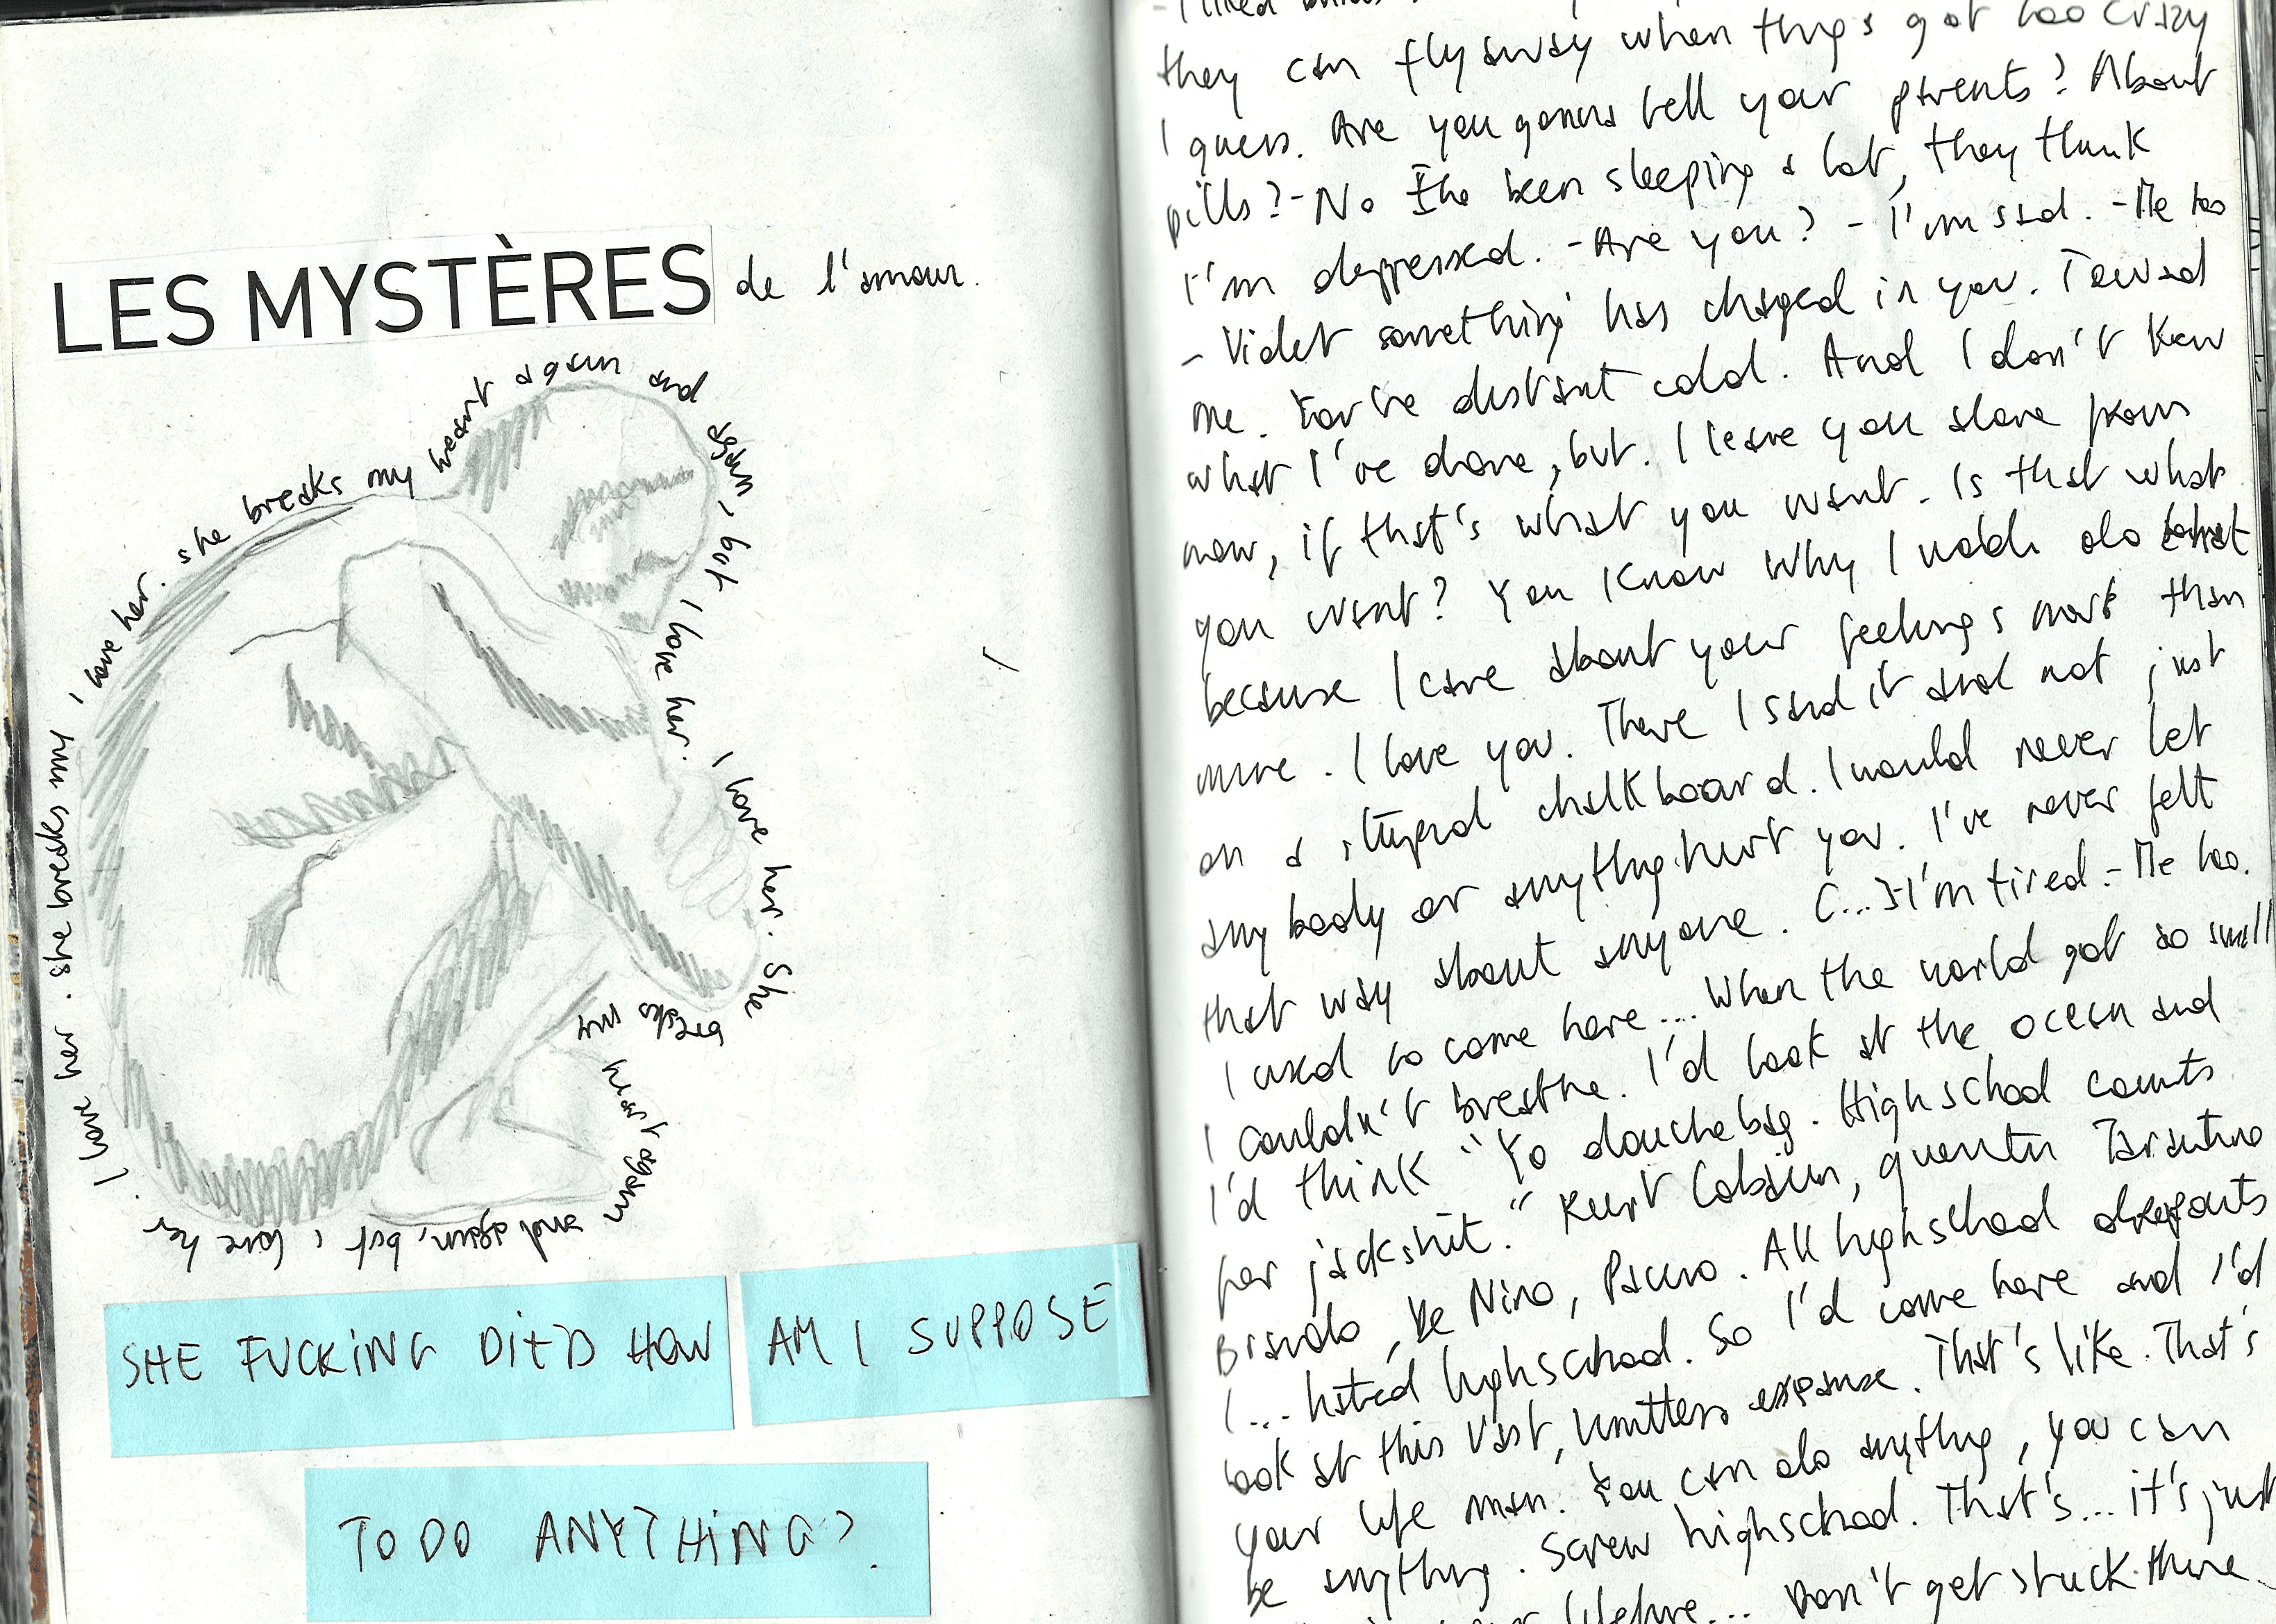 LES MYSTÈRES de l'amour.
I love her. she breaks my heart again and again, but I love her. I love her. She breaks my heart again and again, but i love her.
I love her. she breaks my
SHE FUCKING DIED HOW AM I SUPPOSE
TO DO ANYTHING?
- I liked
they can fly away when things get too crazy
I guess. Are you gonna tell your parents? About
pills? - No I've been sleeping a lot, they think
I'm depressed. - Are you? - I'm sad. - Me too
- Violet something has chaged in you. Toward
me. You're distant cold. And I don't know
what I've done, but. I leave you alone from
now, if that's what you want. Is that what
you want? You know why I would do that
because I care about your feelings more than
mine. I love you. There I said it and not just
on a stupid chalkboard. I would never let
anybody or anything hurt you. I've never felt
that way about anyone. (...) - I'm tired. - Me too.
I used to come here... When the world got so small
I couldn't breathe. I'd look at the ocean and
I'd think "Yo douchebag. High school counts
for jackshit." Kurt Cobain, quentin Tarantino
Brando, De Niro, Pacino. All highschool dropouts
I... hated highschool. So I'd come here and I'd
look at this vast, limitless expanse. That's like. That's
your life man. You can do anything, you can
be anything. Screw highschool. That's... it's just
Don't get stuck there